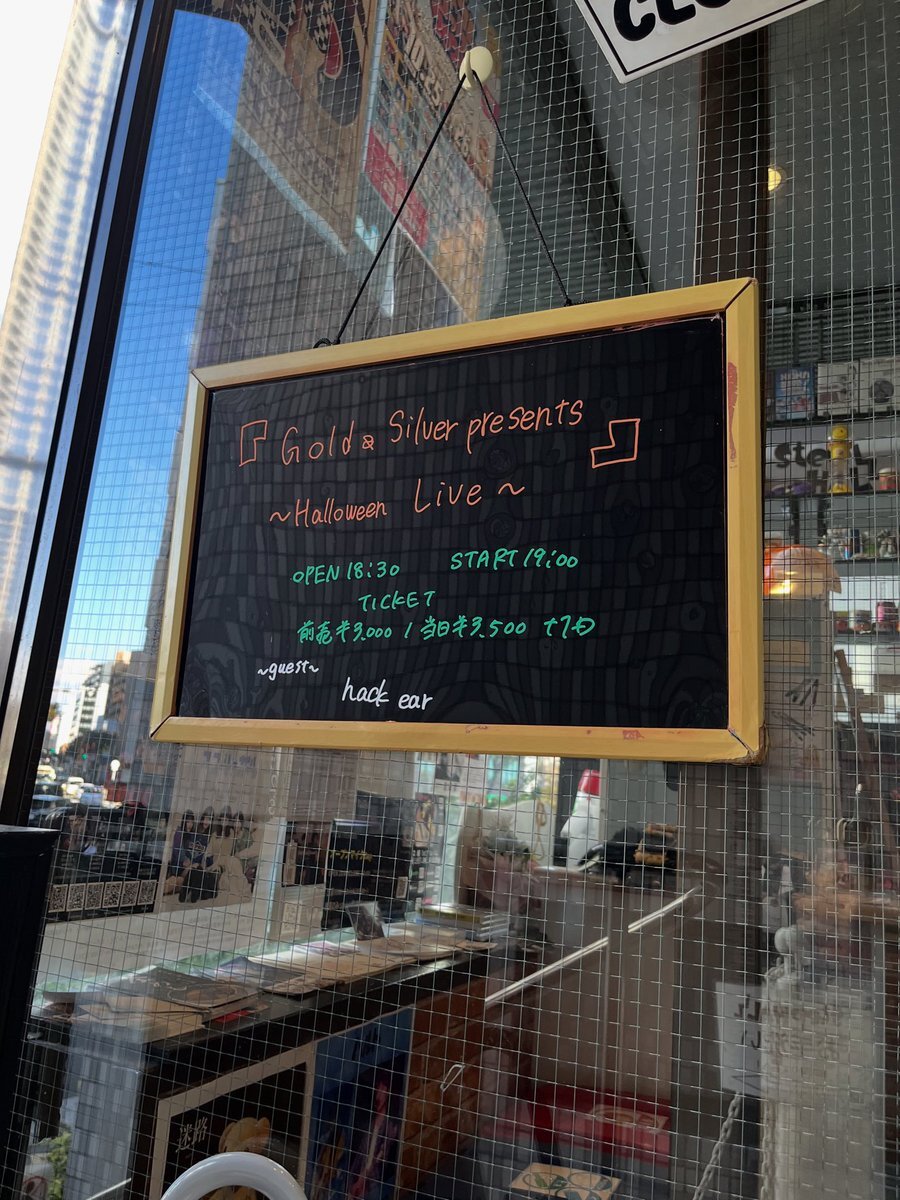 『Gold & Silver presents』
~Halloween Live~
OPEN 18:30 START 19:00
TICKET
前売¥3,000 / 当日¥3,500 +1D
~guest~
hack ear
迷路